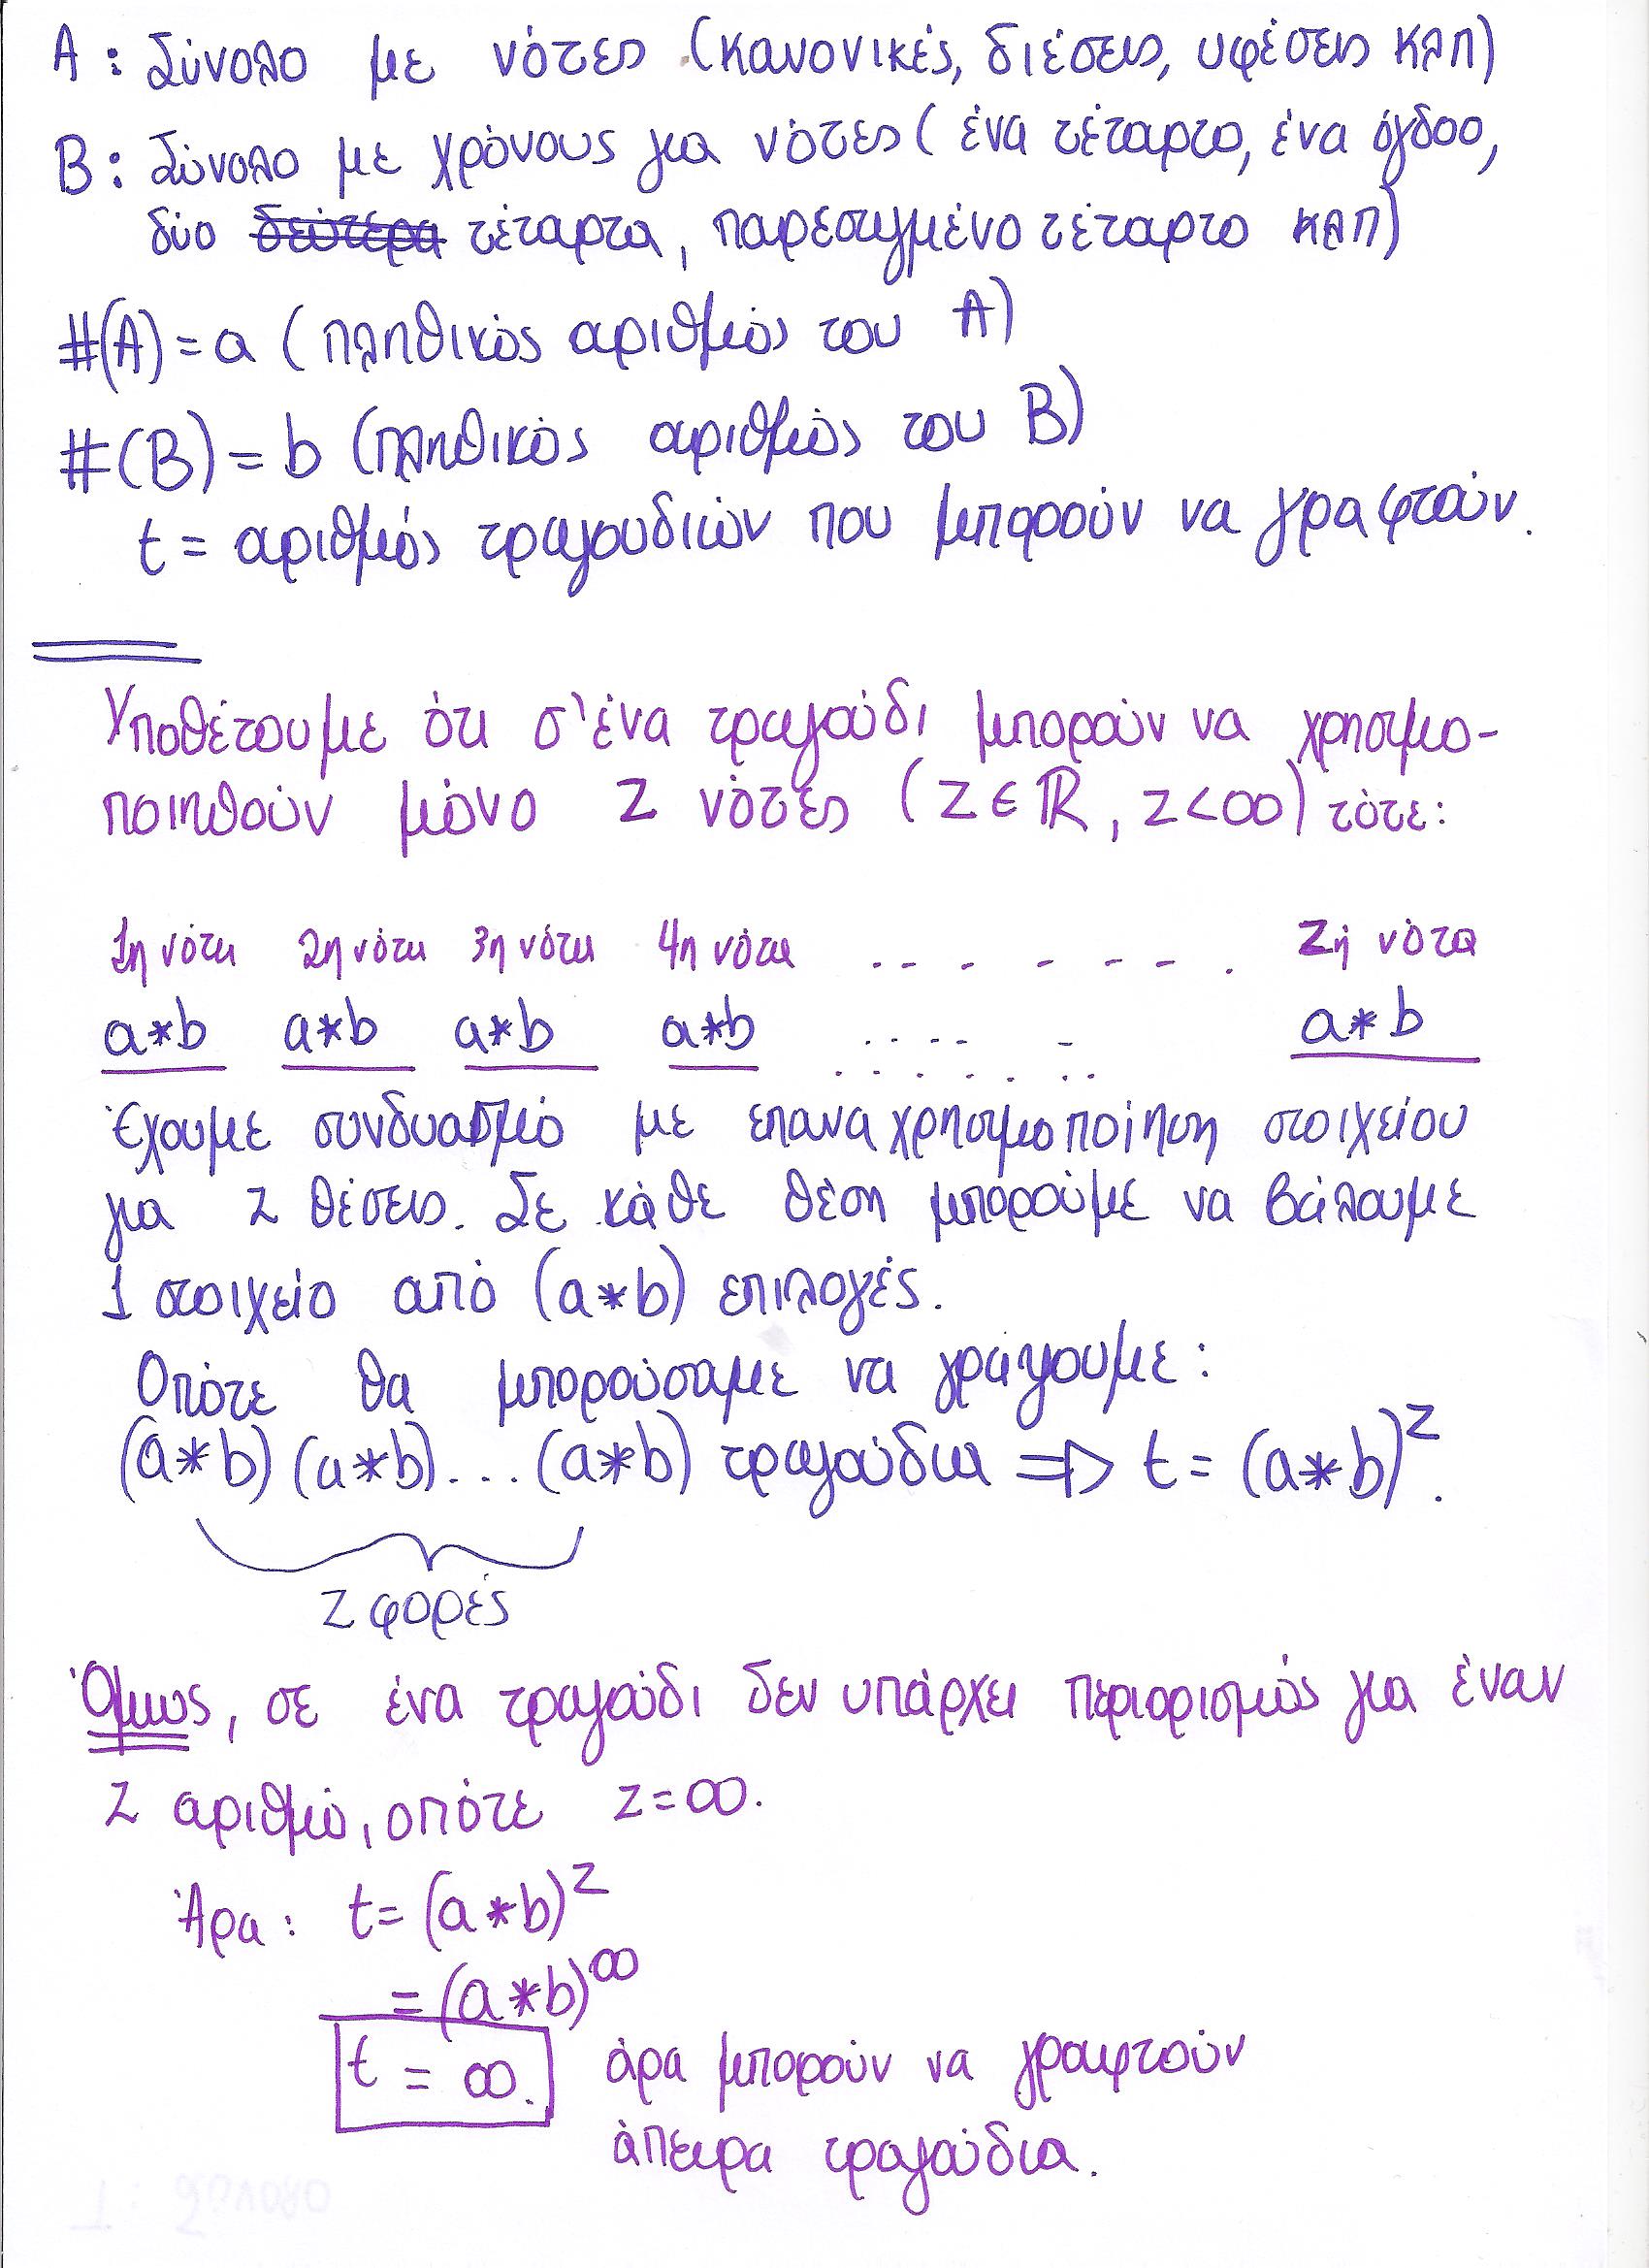 Α : Σύνολο με νότες (κανονικές, διέσεις, υφέσεις κλπ)
Β : Σύνολο με χρόνους για νότες ( ένα τέταρτο, ένα όγδοο,
δύο δεύτερα τέταρτα, παρεστιγμένο τέταρτο κλπ)
#(Α) = a ( πληθικός αριθμός του Α)
#(Β) = b (πληθικός αριθμός του Β)
t = αριθμός τραγουδιών που μπορούν να γραφτούν.
Υποθέτουμε ότι σ'ένα τραγούδι μπορούν να χρησιμο-
ποιηθούν μόνο z νότες ( z ∈ ℝ, z < ∞) τότε:
1η νότα 2η νότα 3η νότα 4η νότα . - - - - - - . Zή νότα
a*b a*b a*b a*b ....-- - a*b
Έχουμε συνδυασμό με επαναχρησιμοποίηση στοιχείου
για z θέσεις. Σε κάθε θέση μπορούμε να βάλουμε
1 στοιχείο από (a*b) επιλογές.
Οπότε θα μπορούσαμε να γράψουμε :
(a*b) (a*b)... (a*b) τραγούδια => t = (a*b)^z.
z φορές
Όμως, σε ένα τραγούδι δεν υπάρχει περιορισμός για έναν
z αριθμό, οπότε z = ∞.
Άρα : t = (a*b)^z
= (a*b)^∞
t = ∞. άρα μπορούν να γραφτούν
άπειρα τραγούδια.